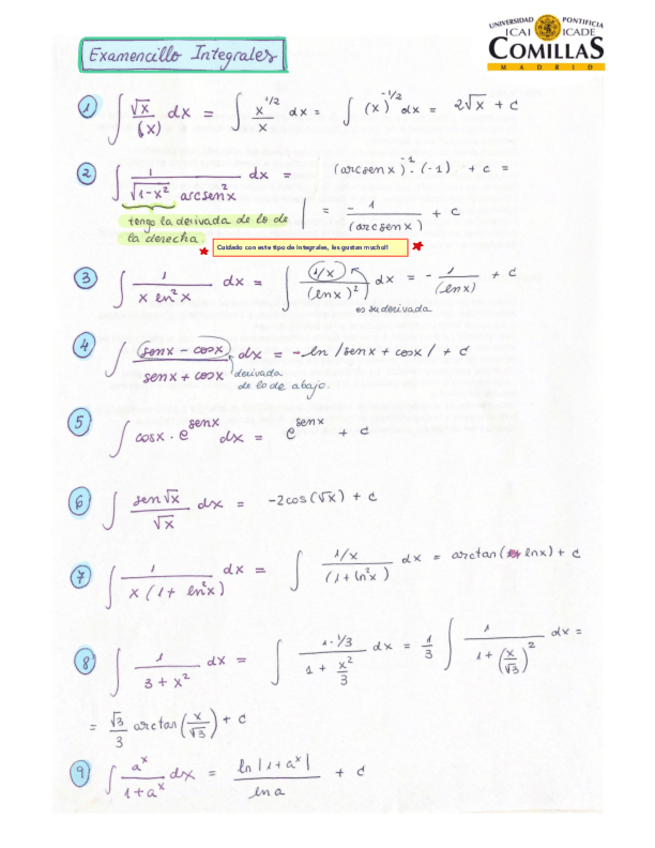 UNIVERSIDAD PONTIFICIA
ICAI ICADE
COMILLAS
MADRID
Examencillo Integrales
1 ∫ √x/(x) dx = ∫ x^1/2 / x dx = ∫ (x)^-1/2 dx = 2√x + c
2 ∫ 1/(√(1-x²) arcsen²x) dx = (arcsen x)^-1 · (-1) + c =
= -1/(arcsen x) + c
tengo la derivada de lo de
la derecha.
Cuidado con este tipo de integrales, les gustan mucho!!
3 ∫ 1/(x ln²x) dx = ∫ (1/x)/(lnx)² dx = - 1/(lnx) + c
es su derivada
4 ∫ (senx - cosx)/(senx + cosx) dx = -ln |senx + cosx| + c
derivada
de lo de abajo.
5 ∫ cosx · e^senx dx = e^senx + c
6 ∫ sen√x/√x dx = -2cos(√x) + c
7 ∫ 1/(x(1 + ln²x)) dx = ∫ (1/x)/(1 + ln²x) dx = arctan(lnx) + c
8 ∫ 1/(3 + x²) dx = ∫ (1·1/3)/(1 + x²/3) dx = 1/3 ∫ 1/(1 + (x/√3)²) dx =
= √3/3 arctan(x/√3) + c
9 ∫ a^x/(1 + a^x) dx = ln|1 + a^x|/ln a + c